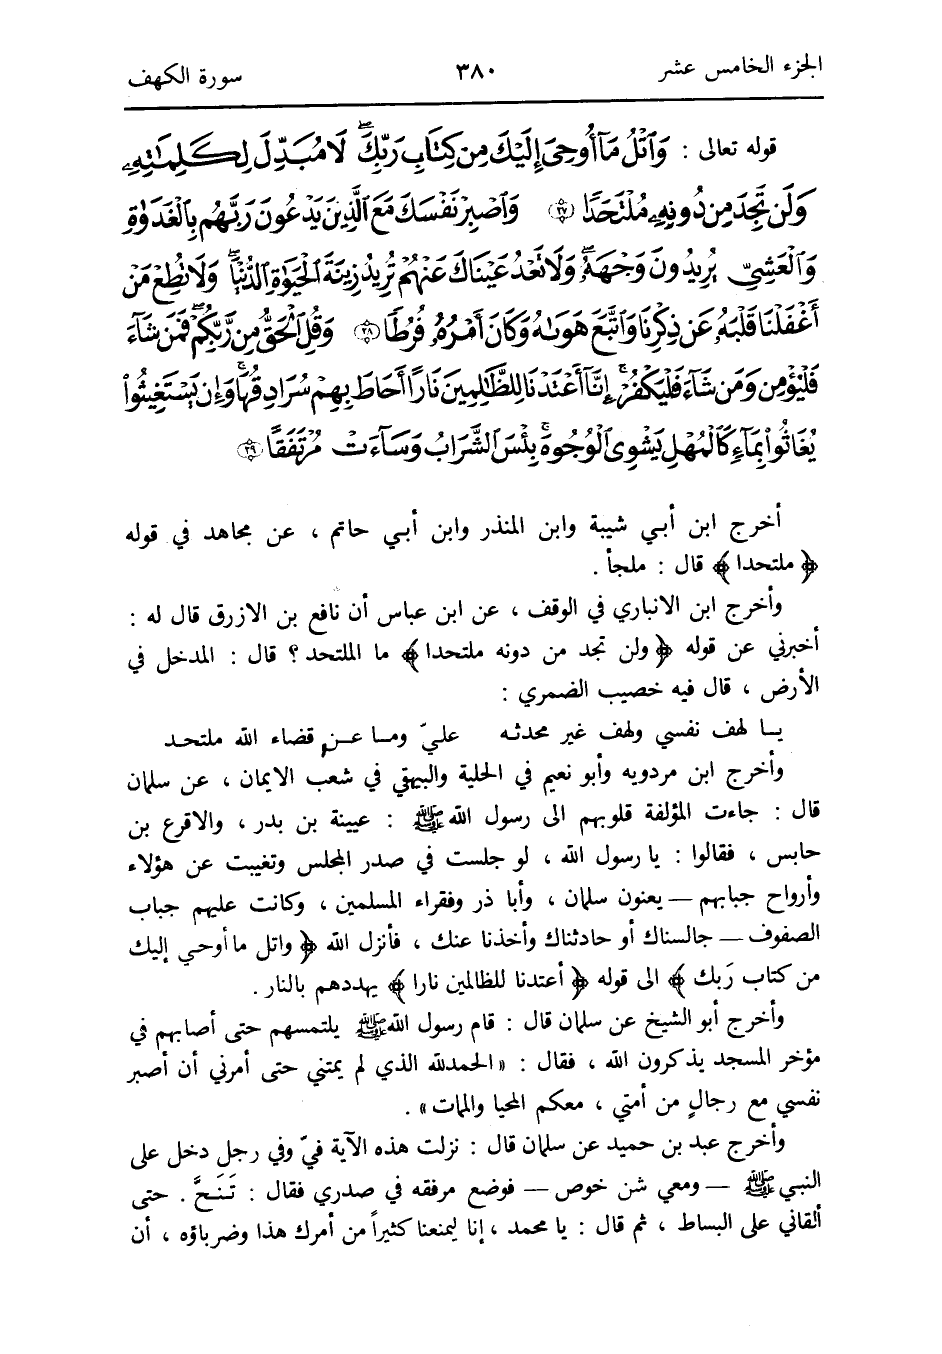 الجزء الخامس عشر ٣٨٠ سورة الكهف
قوله تعالى : وَٱتْلُ مَآ أُوحِىَ إِلَيْكَ مِن كِتَابِ رَبِّكَ ۖ لَا مُبَدِّلَ لِكَلِمَـٰتِهِۦ
وَلَن تَجِدَ مِن دُونِهِۦ مُلْتَحَدًا ٢٧ وَٱصْبِرْ نَفْسَكَ مَعَ ٱلَّذِينَ يَدْعُونَ رَبَّهُم بِٱلْغَدَوٰةِ
وَٱلْعَشِىِّ يُرِيدُونَ وَجْهَهُۥ ۖ وَلَا تَعْدُ عَيْنَاكَ عَنْهُمْ تُرِيدُ زِينَةَ ٱلْحَيَوٰةِ ٱلدُّنْيَا ۖ وَلَا تُطِعْ مَنْ
أَغْفَلْنَا قَلْبَهُۥ عَن ذِكْرِنَا وَٱتَّبَعَ هَوَىٰهُ وَكَانَ أَمْرُهُۥ فُرُطًا ٢٨ وَقُلِ ٱلْحَقُّ مِن رَّبِّكُمْ ۖ فَمَن شَآءَ
فَلْيُؤْمِن وَمَن شَآءَ فَلْيَكْفُرْ ۚ إِنَّآ أَعْتَدْنَا لِلظَّـٰلِمِينَ نَارًا أَحَاطَ بِهِمْ سُرَادِقُهَا ۚ وَإِن يَسْتَغِيثُوا۟
يُغَاثُوا۟ بِمَآءٍ كَٱلْمُهْلِ يَشْوِى ٱلْوُجُوهَ ۚ بِئْسَ ٱلشَّرَابُ وَسَآءَتْ مُرْتَفَقًا ٢٩
أخرج ابن أبي شيبة وابن المنذر وابن أبي حاتم ، عن مجاهد في قوله
﴿ ملتحدا ﴾ قال : ملجأ .
وأخرج ابن الانباري في الوقف ، عن ابن عباس أن نافع بن الازرق قال له :
أخبرني عن قوله ﴿ ولن تجد من دونه ملتحدا ﴾ ما الملتحد ؟ قال : المدخل في
الأرض ، قال فيه خصيب الضمري :
يا لهف نفسي ولهف غير محدثه عليّ وما عن قضاء الله ملتحد
وأخرج ابن مردويه وأبو نعيم في الحلية والبيهقي في شعب الايمان ، عن سلمان
قال : جاءت المؤلفة قلوبهم الى رسول الله ﷺ : عيينة بن بدر ، والاقرع بن
حابس ، فقالوا : يا رسول الله ، لو جلست في صدر المجلس وتغيبت عن هؤلاء
وأرواح جبابهم — يعنون سلمان ، وأبا ذر وفقراء المسلمين ، وكانت عليهم جباب
الصفوف — جالسناك أو حادثناك وأخذنا عنك ، فأنزل الله ﴿ واتل ما أوحي إليك
من كتاب رَبك ﴾ الى قوله ﴿ أعتدنا للظالمين نارا ﴾ يهددهم بالنار .
وأخرج أبو الشيخ عن سلمان قال : قام رسول الله ﷺ يلتمسهم حتى أصابهم في
مؤخر المسجد يذكرون الله ، فقال : «الحمدلله الذي لم يمتني حتى أمرني أن أصبر
نفسي مع رجالٍ من أمتي ، معكم المحيا والمات» .
وأخرج عبد بن حميد عن سلمان قال : نزلت هذه الآية فيّ وفي رجل دخل على
النبي ﷺ — ومعي شن خوص — فوضع مرفقه في صدري فقال : تَنَحَّ . حتى
ألقاني على البساط ، ثم قال : يا محمد ، إنا ليمنعنا كثيراً من أمرك هذا وضرباؤه ، أن